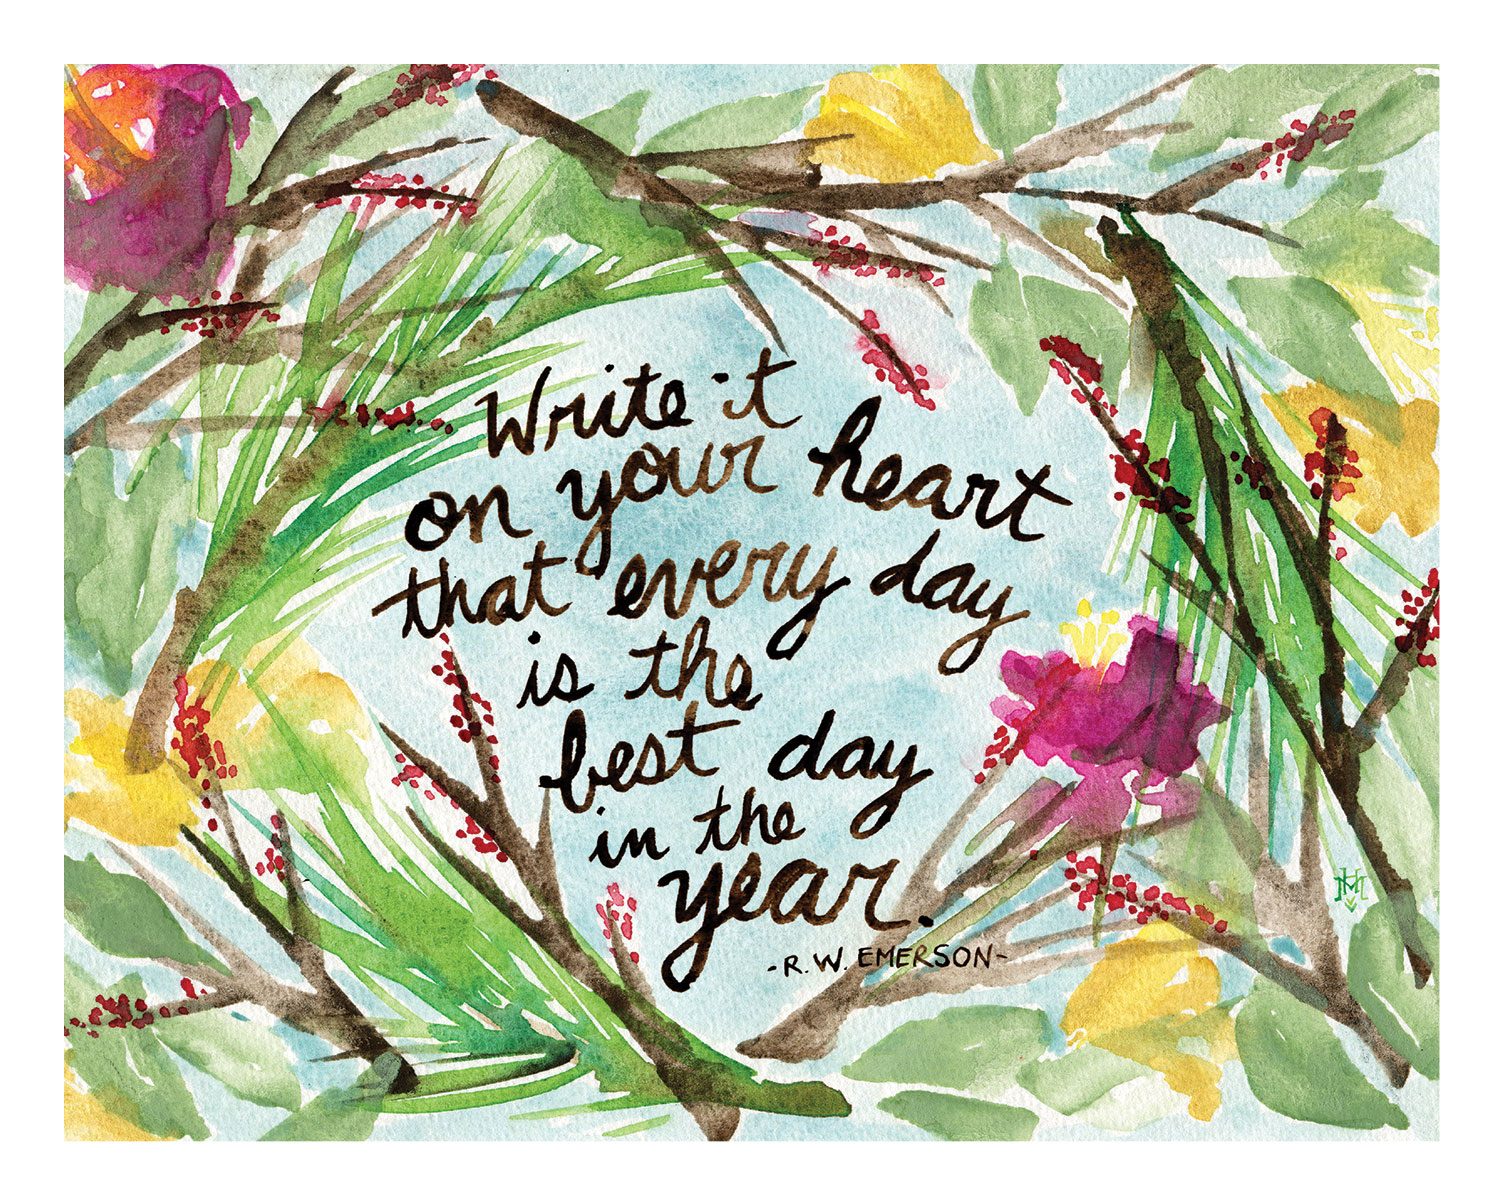 Write it
on your heart
that every day
is the
best day
in the
year.
-R. W. EMERSON-